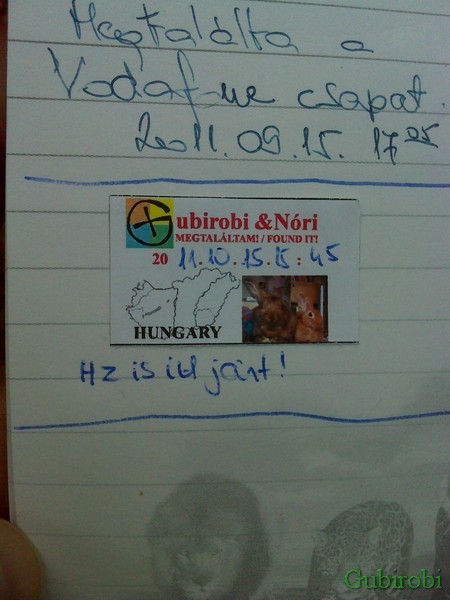 Megtalálta a
Vodafone csapat.
2011.09.15. 17 25
Gubirobi & Nóri
MEGTALÁLTAM! / FOUND IT!
20 11.10.15.15:45
HUNGARY
Hz is itt járt!
Gubirobi